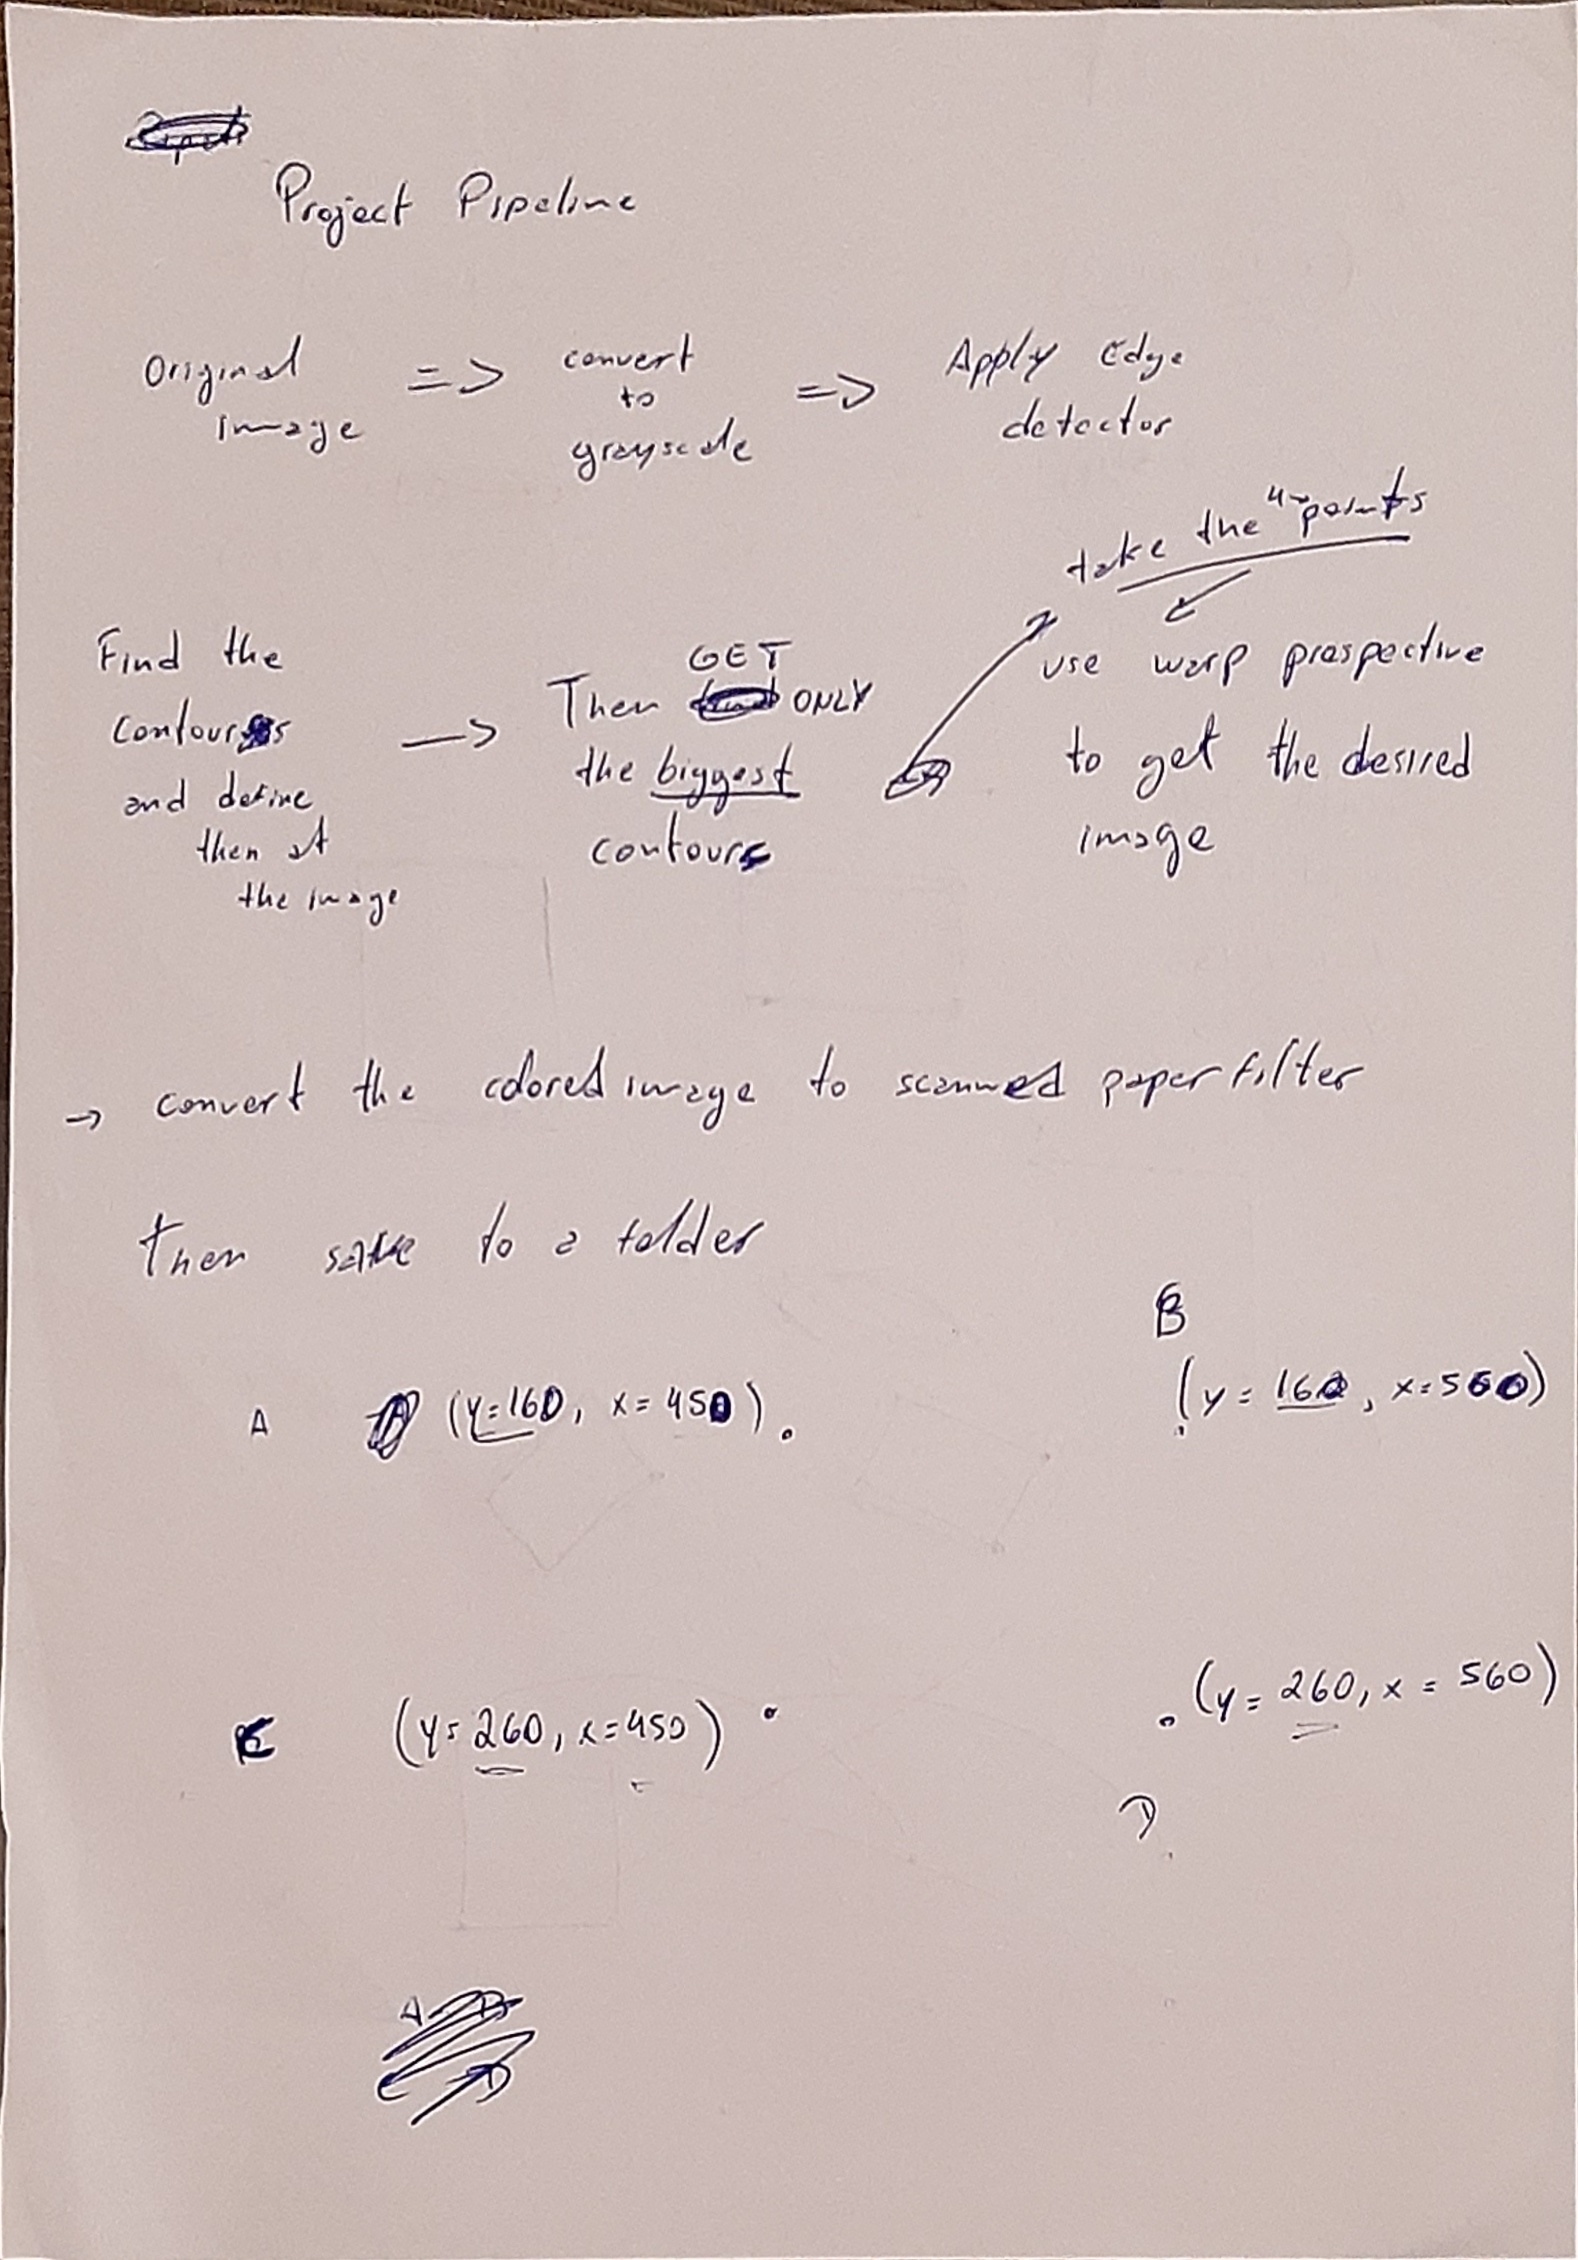 Project Pipeline
Original => convert => Apply Edge
image to detector
grayscale
take the 4 points
Find the
contours
and define
then at
the image
->
GET
Then ONLY
the biggest
contours
use warp prespective
to get the desired
image
-> convert the colored image to scanned paper filter
then save to a folder
B
A (y=160, x=450). (y=160, x=560)
C (y=260, x=450) . (y=260, x=560)
D